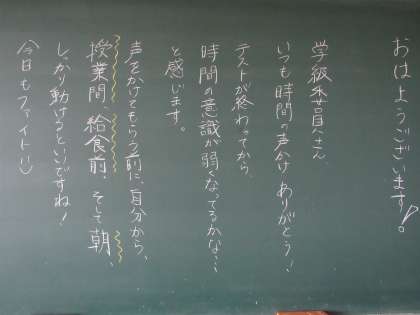 おはようございます!。
学級委員さん、
いつも時間の声かけありがとう!
テストが終わってから、
時間の意識が弱くなってるかな…
と感じます。
声をかけてもらう前に、自分から、
授業間、給食前、そして朝、
しっかり動けるといいですね!
今日もファイト!!